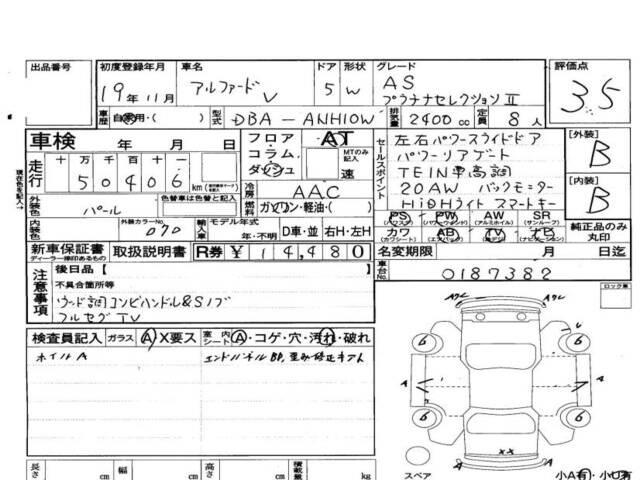 出品番号 初度登録年月 車名 ドア 形状 グレード 評価点
19年11月 アルファードV 5 W AS プラチナセレクションⅡ 3.5
車歴 自家用・( ) 型式 DBA-ANH10W 排気量 2400cc 定員 8人
車検 年 月 日 フロア コラム ダッシュ AT MTのみ記入 速
セールスポイント 左右パワースライドドア
パワーリアゲート
TEIN車高調
20AW バックモニター
HiDHライト スマートキー
[外装] B
[内装] B
走行 十 万 千 百 十 一
50406 km
冷房 AAC
外装色 パール 色替車は色替と記入
燃料 ガソリン・軽油・( )
内装色 外装カラーNo. 070 輸入車 モデル年式 年・不明 D車・並 右H・左H
PS PW AW SR
(パワステ) (パワーウィンドウ) (アルミホイル) (サンルーフ)
カワ AB TV ナビ
(カワシート) (エアバック) (テレビ) (ナビゲーション)
純正品のみ丸印
新車保証書 ディーラー捺印あるもの 取扱説明書 R券 ¥14,480 名変期限 月 日迄
車台No. 0187382
注意事項 後日品[ ]
不具合箇所等
ウッド調コンビハンドル&Sノブ
フルセグTV
ロック車
検査員記入 ガラス A X要ス 室内シート A・コゲ・穴・汚れ・破れ
ホイルA エンドパネルBP,歪み修正キズト
A7レ A7レ
6 6
A A
6 6
××
A
スペア
小A有・小U有
長さ cm 幅 cm 高さ cm 積載量 kg
現在色を記入→